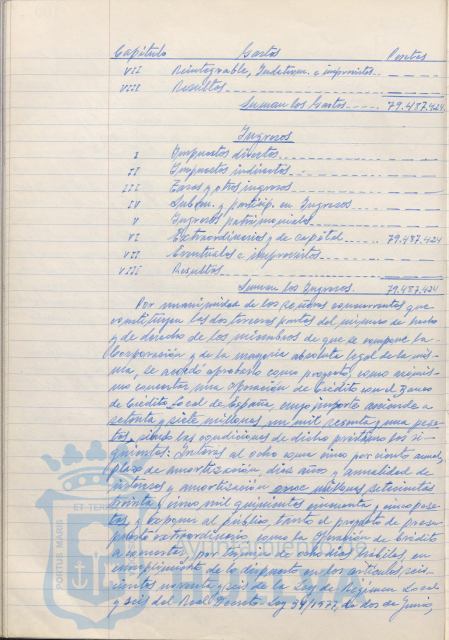 Capítulo Gastos Pesetas
VII Reintegrable, Indeterm. e imprevistos
VIII Resultas
Suman los Gastos 79.487.424
Ingresos
I Impuestos directos
II Impuestos indirectos
III Tasas y otros ingresos
IV Subven. y particip. en Ingresos
V Ingresos patrimoniales
VI Extraordinarios y de capital 79.487.424
VII Eventuales e imprevistos
VIII Resultas
Suman los Ingresos. 79.487.424
Por unanimidad de los señores concurrentes que
constituyen las dos terceras partes del número de hecho
y de derecho de los miembros de que se compone la
Corporación y de la mayoría absoluta legal de la mis-
ma, se acordó aprobarlo como proyecto, como asimis-
mo concertar una operación de Crédito con el Banco
de Crédito Local de España, cuyo importe asciende a
setenta y siete millones un mil sesenta y una pese-
tas, siendo las condiciones de dicho préstamo las si-
guientes: Interés al ocho coma cinco por ciento anual,
plazo de amortización, diez años y anualidad de
intereses y amortización once millones, setecientas
treinta y cinco mil quinientas cincuenta y cinco pese-
tas, y exponer al público tanto el proyecto de presu-
puesto extraordinario, como la operación de Crédito
a concertar, por término de ocho días hábiles, en
cumplimiento de lo dispuesto en los artículos, seis-
cientos noventa y seis de la Ley de Régimen Local
y seis del Real Decreto-Ley 34/1977, de dos de Junio,
PORTUS MARIS ET TERR
Ayuntamiento de
HUELVA